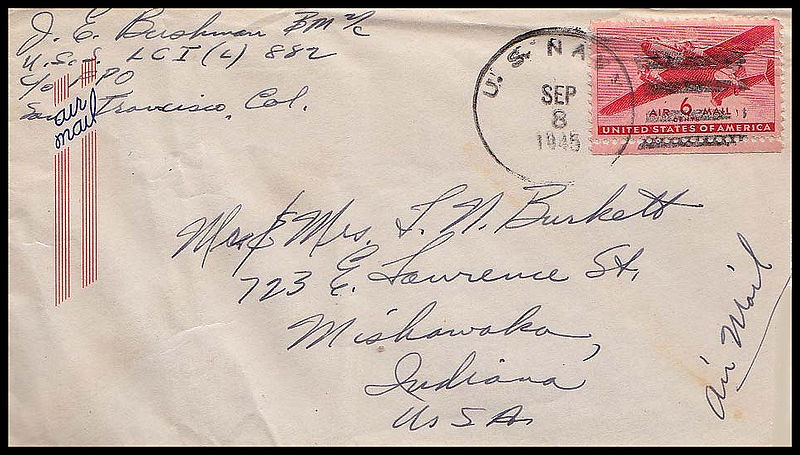 J. E. Bushman BM 2/c
U.S.S. LCI (L) 882
c/o FPO
San Francisco, Cal.
air
mail
U. S. NAVY
SEP
8
1945
AIR 6 MAIL
CENTS
UNITED STATES OF AMERICA
Mr & Mrs. L. N. Burkett
723 E. Lawrence St.
Mishawaka,
Indiana
U.S.A.
Air Mail